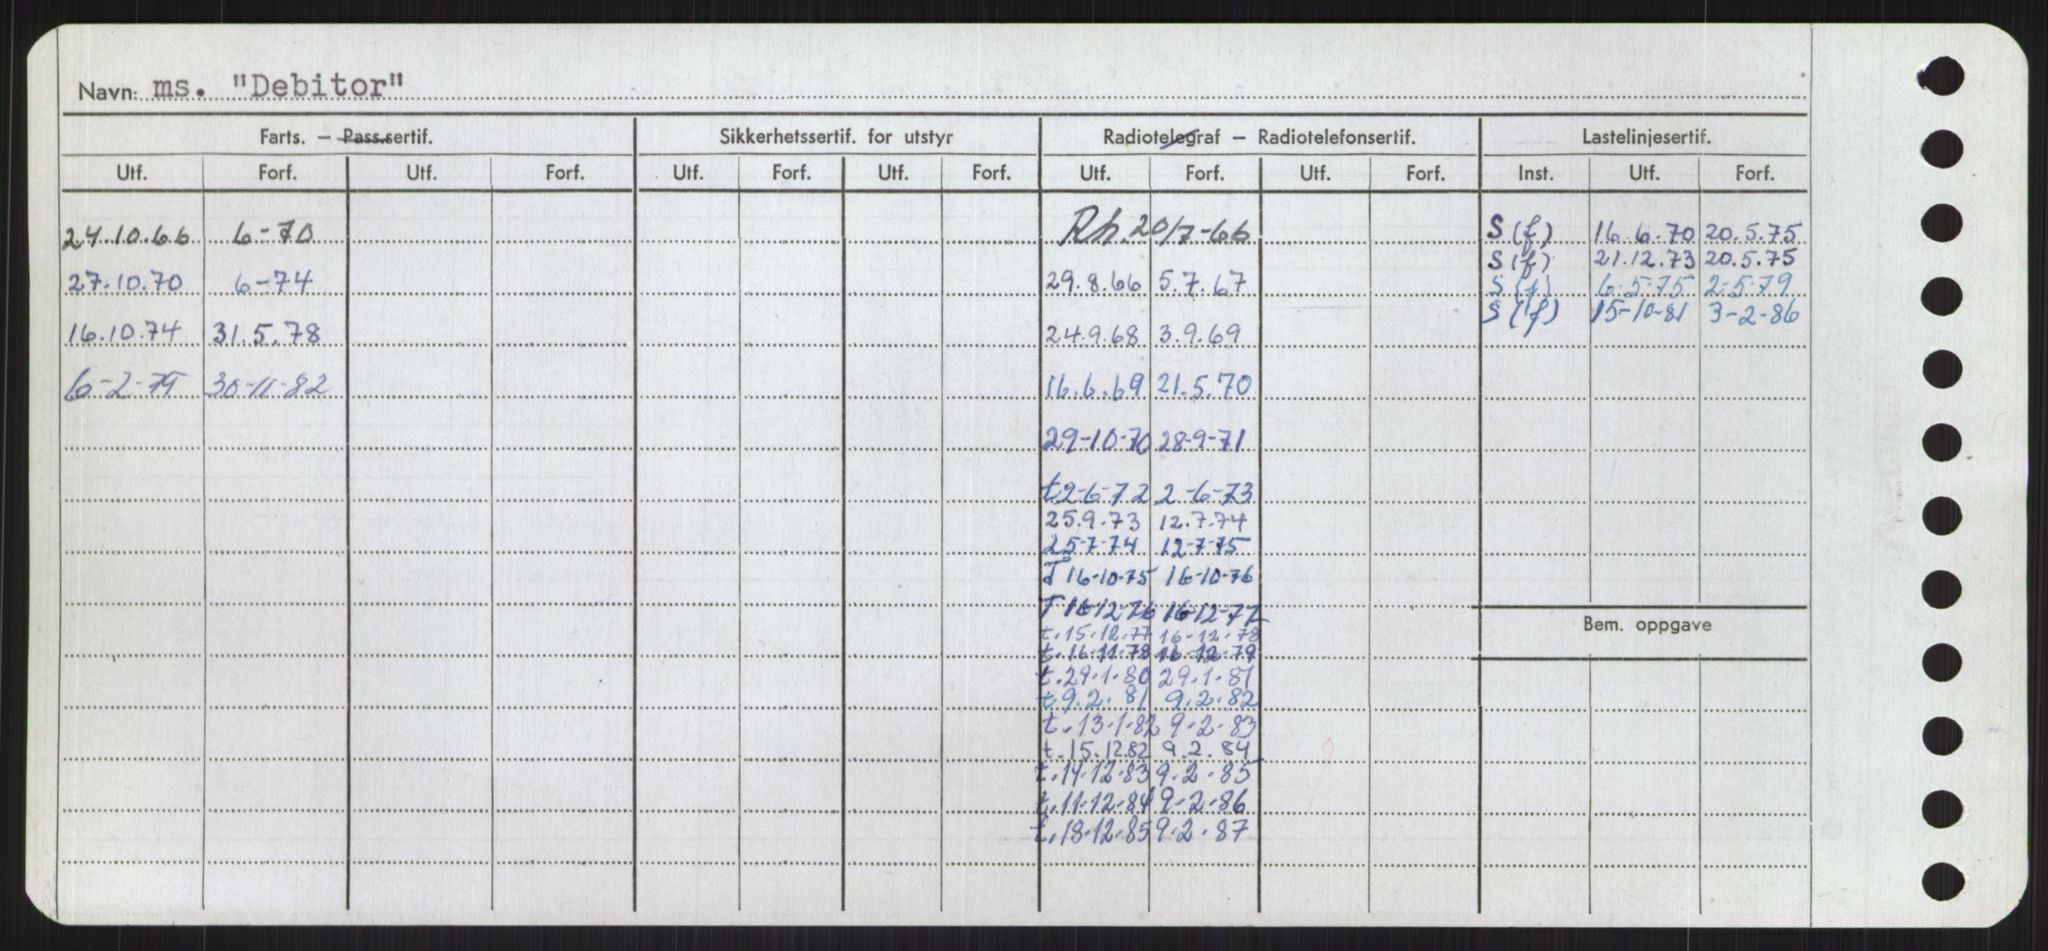 Navn: ms. "Debitor"
Farts. — Pass.sertif. Sikkerhetssertif. for utstyr Radiotelegraf — Radiotelefonsertif. Lastelinjesertif.
Utf. Forf. Utf. Forf. Utf. Forf. Utf. Forf. Utf. Forf. Utf. Forf. Inst. Utf. Forf.
24.10.66 6-70 Rh. 20/7-66 S (f) 16.6.70 20.5.75
S (f) 21.12.73 20.5.75
27.10.70 6-74 29.8.66 5.7.67 S (f) 6-5-75 2-5-79
S (f) 15-10-81 3-2-86
16.10.74 31.5.78 24.9.68 3.9.69
6-2-79 30-11-82 16.6.69 21.5.70
29-10-70 28-9-71
t 2-6-72 2-6-73
25.9.73 12.7.74
25-7-74 12-7-75
T 16-10-75 16-10-76
T 16-12-76 16-12-77
Bem. oppgave
t. 15.12.77 16-12-78
t. 16-11-78 16-12-79
t. 29.1.80 29.1.81
t 9.2.81 9.2.82
t. 13-1-82 9-2-83
t. 15.12.82 9.2.84
t. 14-12-83 9-2-85
t. 11-12-84 9-2-86
t. 18-12-85 9.2.87